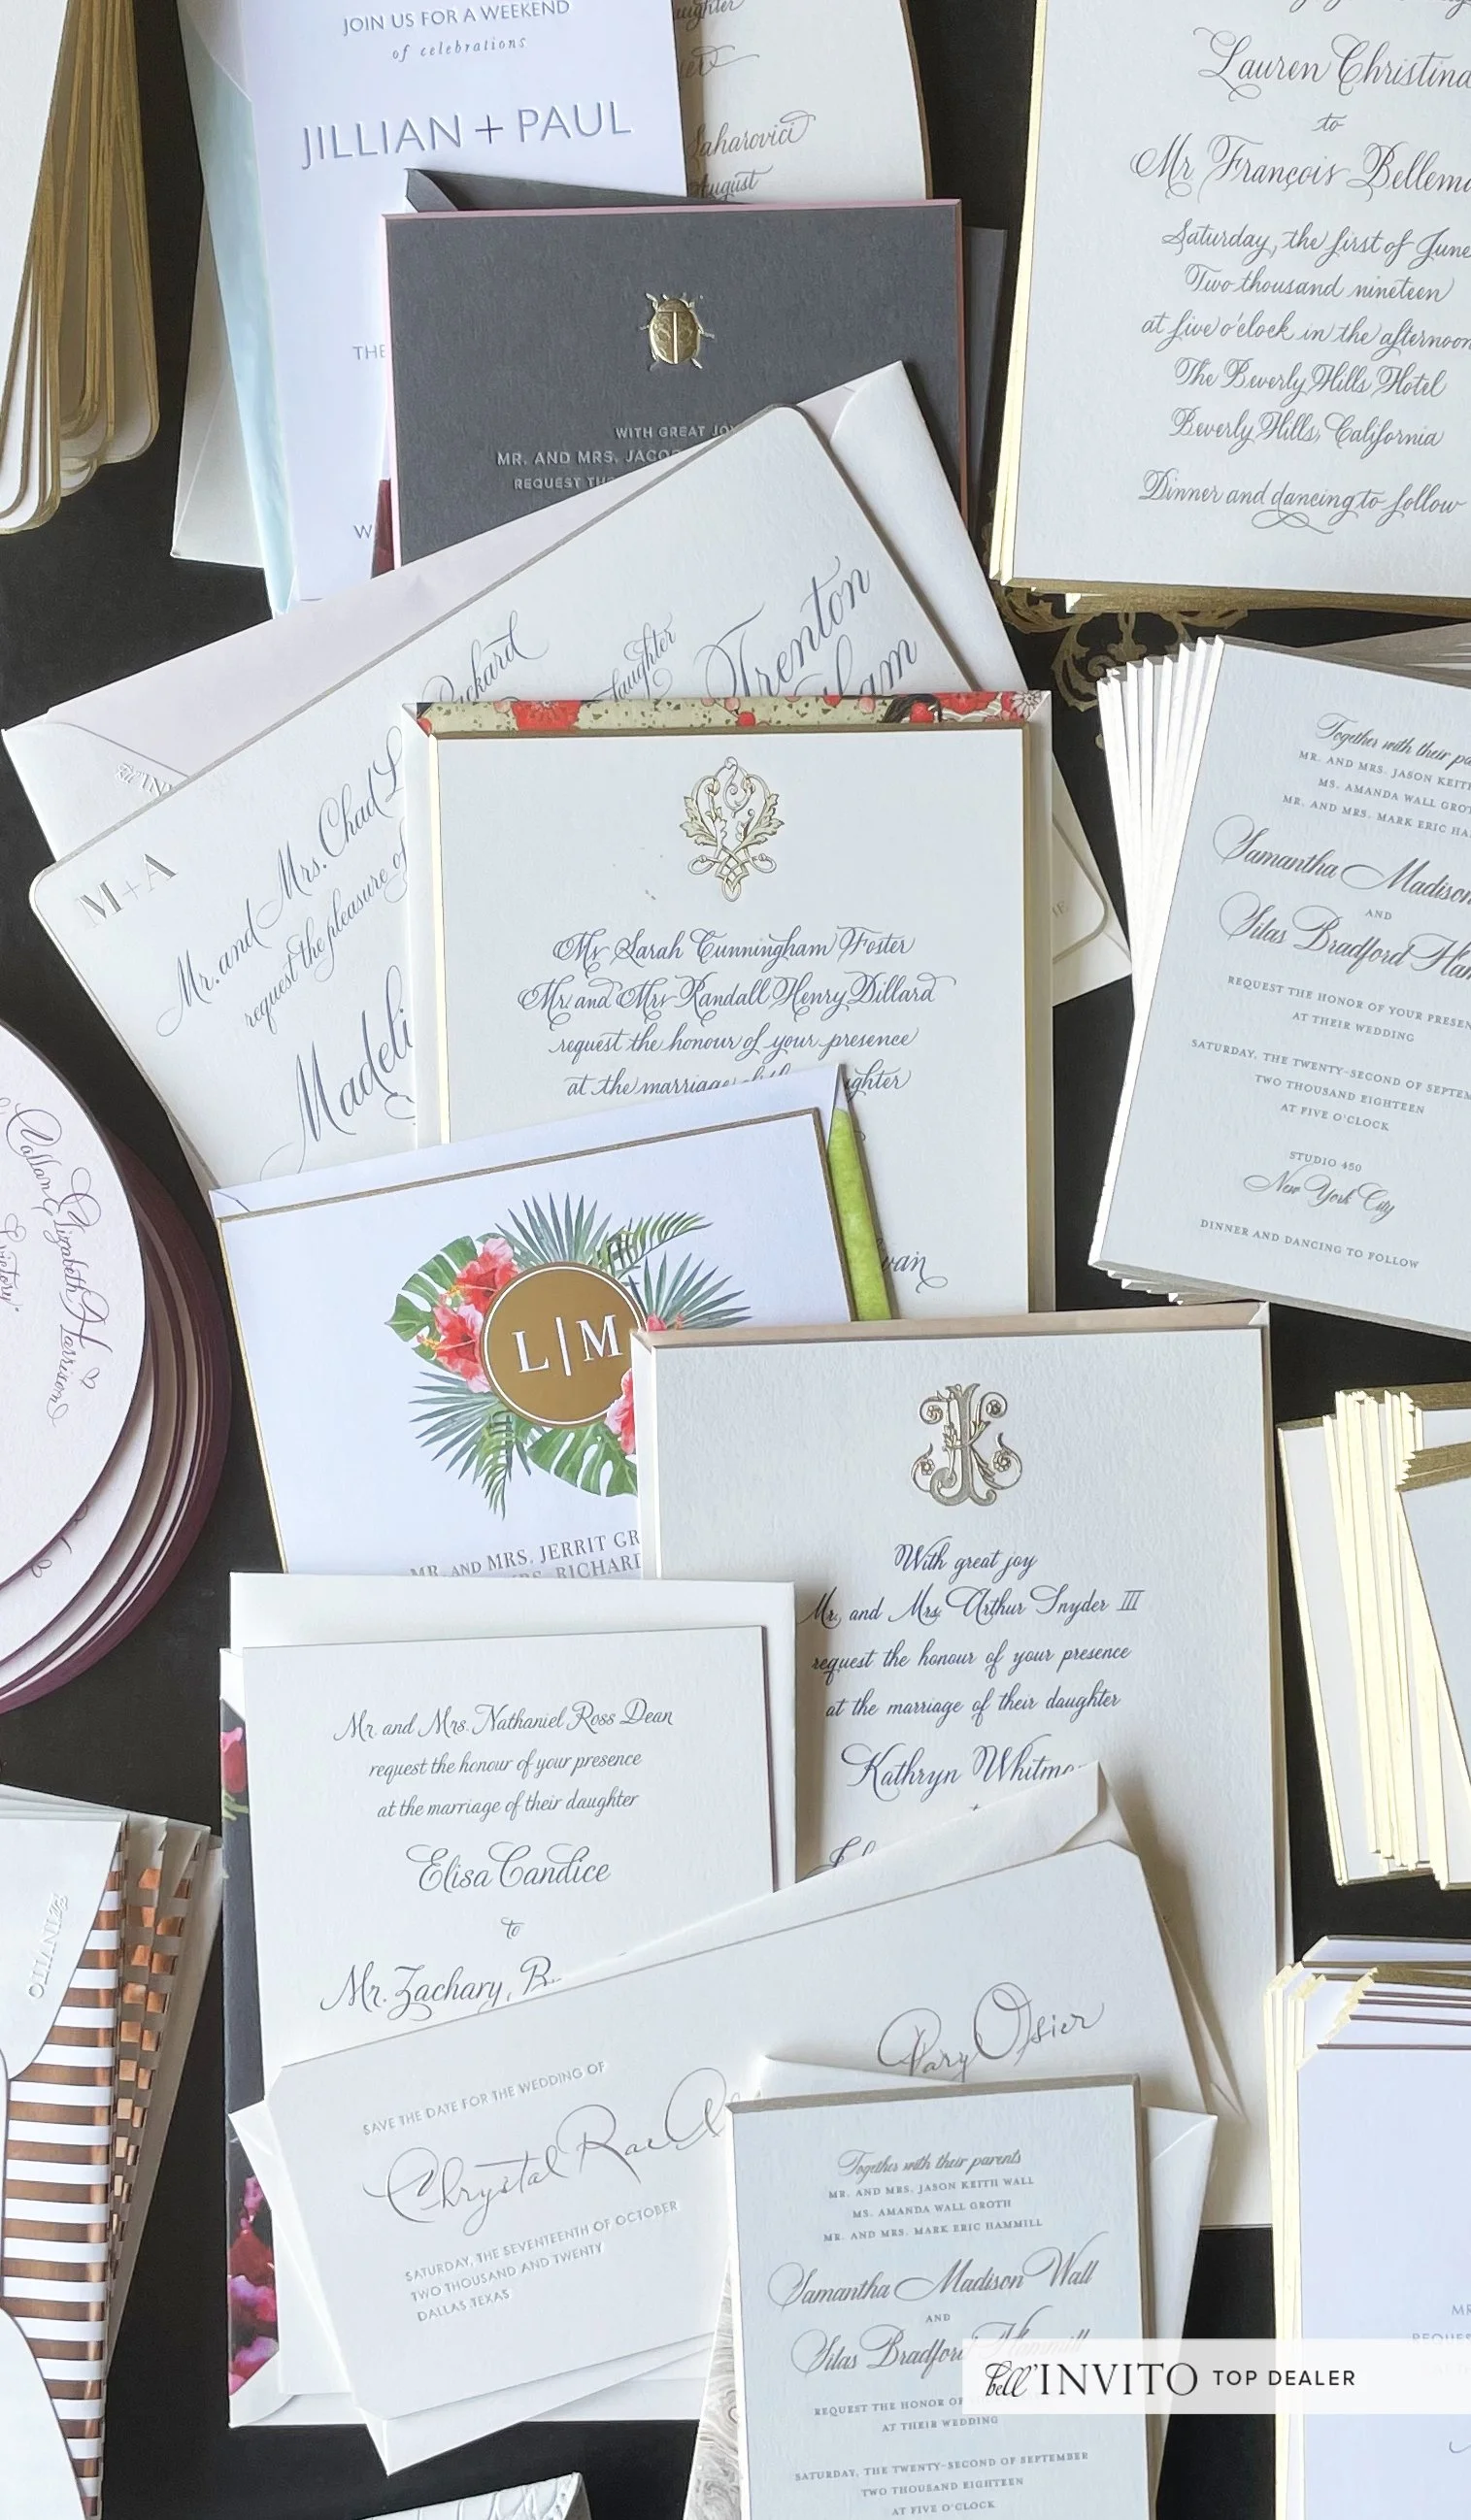 JOIN US FOR A WEEKEND
of celebrations
JILLIAN + PAUL
THE
W
Saharovici
August
Lauren Christina
to
Mr François
Saturday, the first of June
Two thousand nineteen
at five o'clock in the afternoon
The Beverly Hills Hotel
Beverly Hills, California
Dinner and dancing to follow
WITH GREAT JOY
MR. AND MRS.
REQUEST THE
Trenton
daughter
M+A
Mr. and Mrs. Chad L
request the pleasure of
Madeli
Ms Sarah Cunningham Foster
Mr. and Mrs Randall Henry Dillard
request the honour of your presence
at the marriage
Together with their
MR. AND MRS. JASON KEITH
MS. AMANDA WALL
MR. AND MRS. MARK ERIC
Samantha Madison
AND
Silas Bradford
REQUEST THE HONOR OF YOUR
AT THEIR WEDDING
SATURDAY, THE TWENTY-SECOND OF
TWO THOUSAND EIGHTEEN
AT FIVE O'CLOCK
STUDIO 450
New York City
DINNER AND DANCING TO FOLLOW
Elizabeth Harrison
L|M
MR. AND MRS. JERRIT GR
RICHARD
With great joy
Mr. and Mrs. Arthur Snyder III
request the honour of your presence
at the marriage of their daughter
Kathryn
Mr. and Mrs. Nathaniel Ross Dean
request the honour of your presence
at the marriage of their daughter
Elisa Candice
to
Mr. Zachary
SAVE THE DATE FOR THE WEDDING OF
Chrystal Rae
Osier
SATURDAY, THE SEVENTEENTH OF OCTOBER
TWO THOUSAND AND TWENTY
DALLAS TEXAS
Together with their parents
MR. AND MRS. JASON KEITH WALL
MS. AMANDA WALL GROTH
MR. AND MRS. MARK ERIC HAMMILL
Samantha Madison Wall
AND
Silas Bradford Hammill
REQUEST THE HONOR OF
AT THEIR WEDDING
SATURDAY, THE TWENTY-SECOND OF SEPTEMBER
TWO THOUSAND EIGHTEEN
AT FIVE O'CLOCK
bell'INVITO TOP DEALER